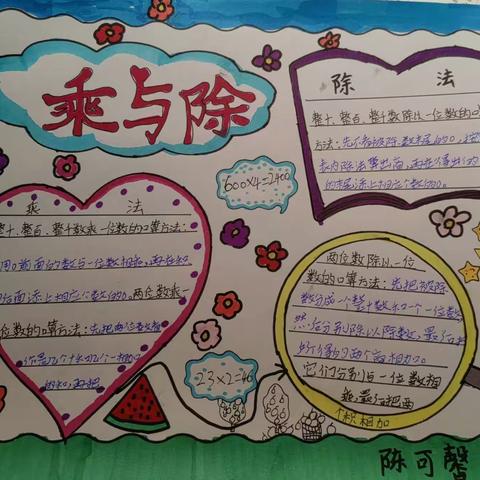 乘与除
除 法
整十、整百、整千数除以一位数的口
方法:先不看被除数末尾的0,按
表内除法算出商,再在算出的
的末尾添上相应个数的0。
600×4=2400
乘 法
整十、整百、整千数乘一位数的口算方法:
用0前面的数与一位数相乘,再在积
后面添上相应个数的0。两位数乘一
位数的口算方法:先把两位数看
作是几个十和几个一相加
的和,再把
23×2=46
两位数除以一位
数的口算方法:先把被除
数分成一个整十数和一个一位数
然后分别除以除数,最后
所得的两个商相加。
它们分别与一位数相
乘,最后把两
个积相加
陈可馨